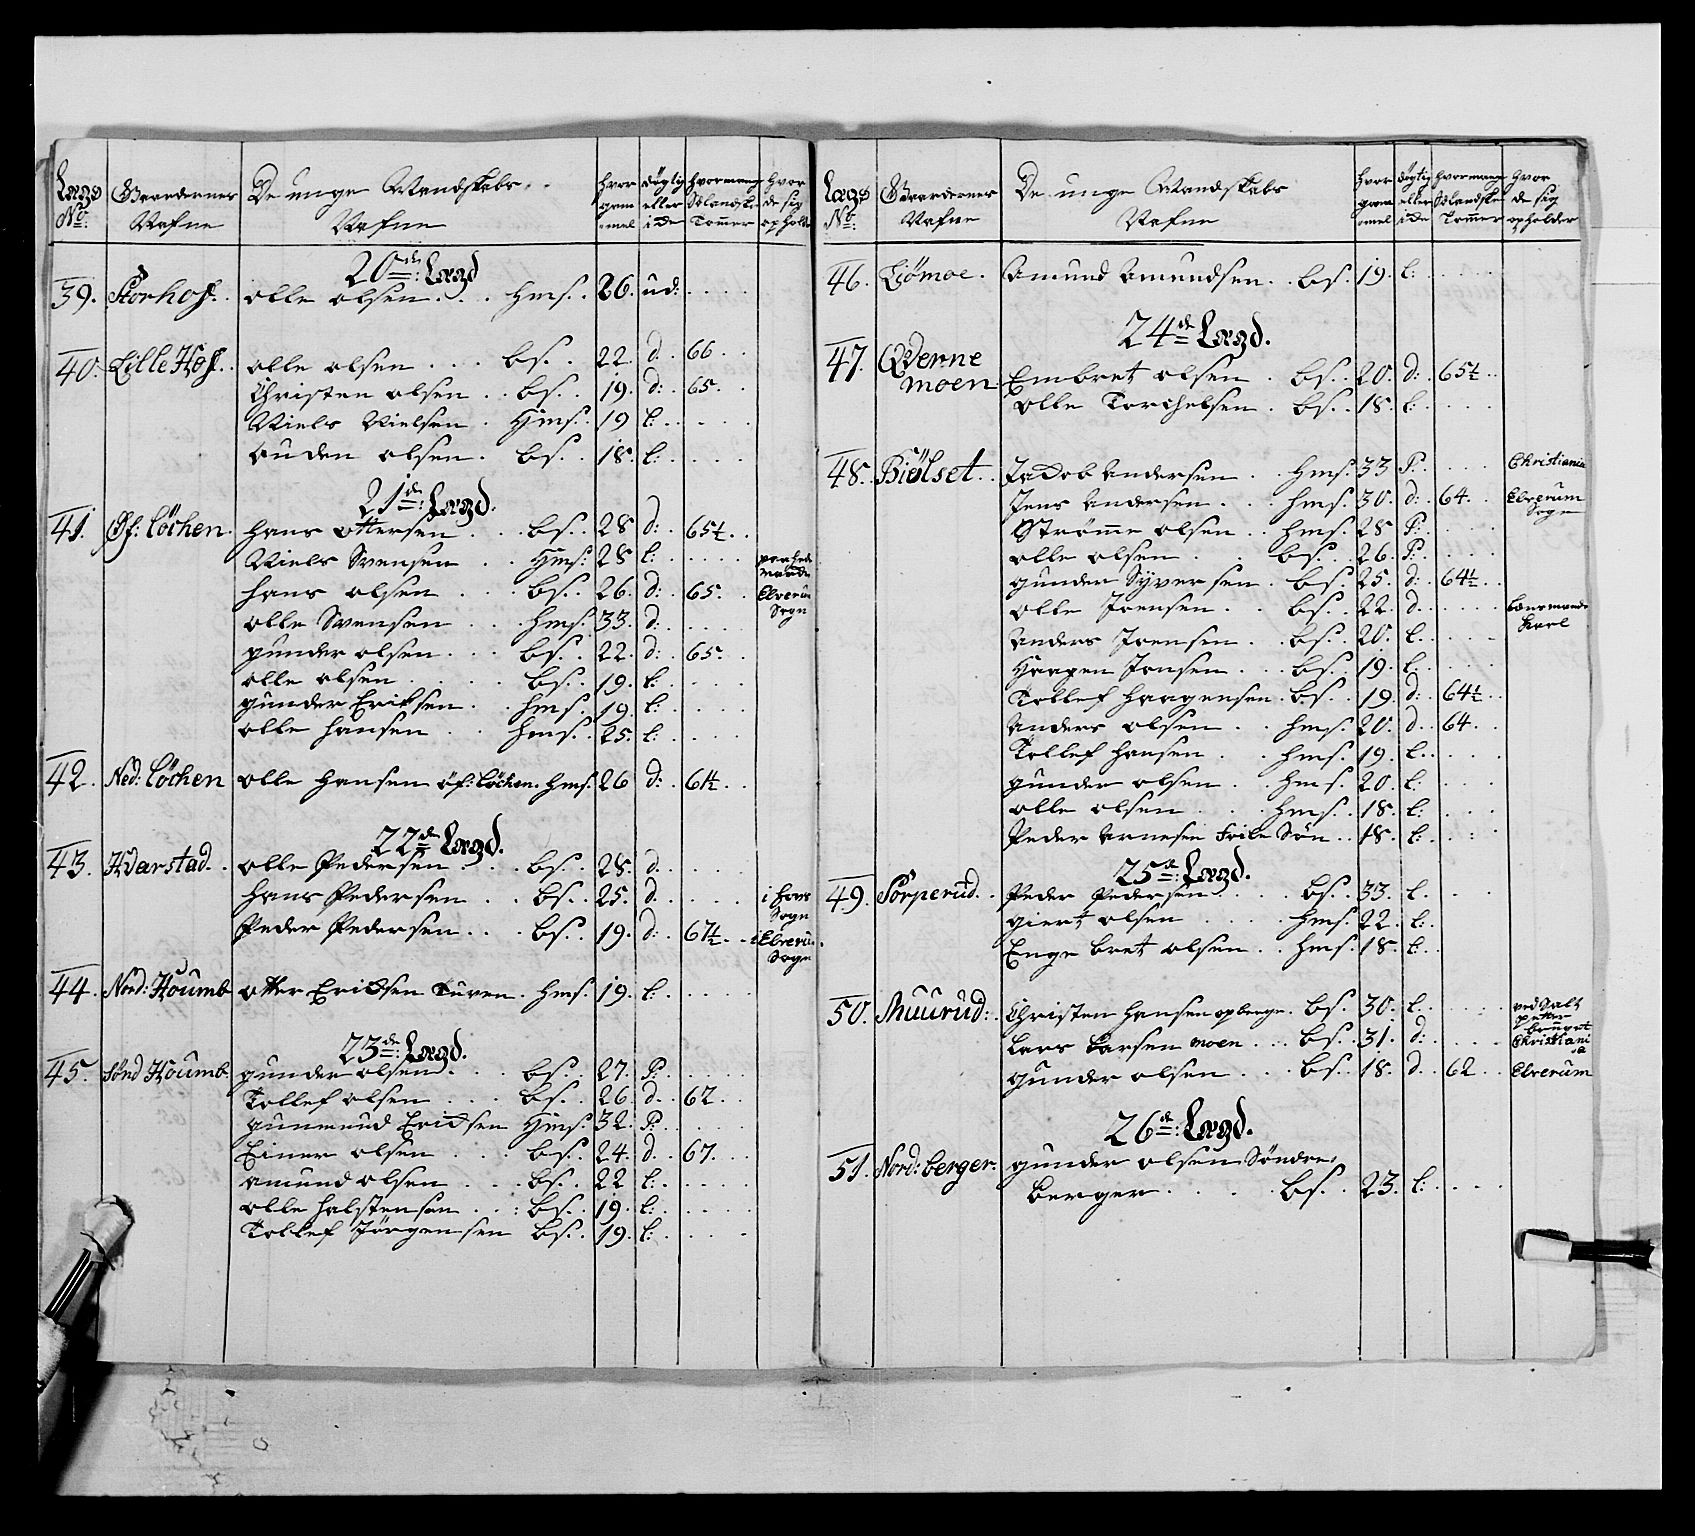 Lægs No: Gaardernes Nafne De unge Mandskabs Nafne hvor gammel dygtig eller icke hvormang Sslandske Tommer hvor de sig opholde
20de Lægd
39. Storhof. olle olsen hms. 26. ud:
40. Lille Hof. olle olsen bs. 22. d: 66
Christen olsen bs. 19. d: 65.
Niels Nielsen Hms. 19 l:
Auden olsen bs. 18. l:
21de Lægd.
41. Øf: Løchen. hans ottersen bs. 28 d: 65½
Niels Svensen Hms: 28 l:
hans olsen bs. 26. d: 65. Elverum Sogn
olle Svensen hms. 33. d:
gunder olsen bs. 22. d: 65.
olle olsen bs. 19. l:
gunder Eriksen hms. 19. l:
olle hansen hms. 25. l:
42. Ned: Løchen olle hansen öf: Löchen. hms. 26 d: 61½
22de Lægd.
43. Hvarstad. olle Pedersen bs. 28. d.
hans Pedersen bs. 25. d. Sogn
Peder Pedersen bs. 19. d: 67½ i Elverum Sogn
44. Nord: Houmb otter Ericksen Turen. hms. 19. l:
23de Lægd.
45. Sønd Houmb. gunder olsen bs. 27. P:
Tollef olsen bs. 26. d. 62
gunmund Ericksen Hms. 32. P:
Einer olsen bs. 24. d 67.
amund olsen bs. 22 l:
olle halstensen bs. 19. l:
Tollef Jørgensen bs. 19. l:
Lægs No: Gaardernes Nafne De unge Mandskabs Nafne hvor gammel dygtig eller icke hvormang Sslandske Tommer hvor de sig opholder
46. Liömoe. Amund Amundsen bs. 19. l:
24de Lægd.
47. Qverne
moen Embret olsen bs. 20. d: 65½
olle Torchelsen bs. 18. l:
48. Biølset Jacob Andersen hms. 33 P. Christiania
Jens Andersen hms. 30. d: 64 Elverum Sogn
Strømme olsen hms. 28 P:
olle olsen bs. 26. P.
gunder Syversen bs. 25. d: 64½
olle Joensen bs. 22. d.
Anders Joensen bs. 20. l.
Haagen Jonsen bs. 19. l.
Tollef haagensen bs. 19 d: 64½
Anders olsen hms. 20. d 64
Tollef hansen hms. 19. l.
gunder olsen hms. 20. l:
olle olsen hms. 18. l:
Peder Arnesen Frile Søn 18. l:
25de Lægd.
49. Sörperud. Peder Pedersen bs. 33. l.
giert olsen hms. 22. l:
Engebret olsen hms. 18. l:
50. Muurud: Christen hansen opberge. bs. 30. l: ved Salt petter
Lars Larsen moen bs. 31. d: Christiania
gunder olsen bs. 18. d. 62 Elverum
26de Lægd.
51. Nord: berger. gunder olsen Söndre
berger bs. 23. l: